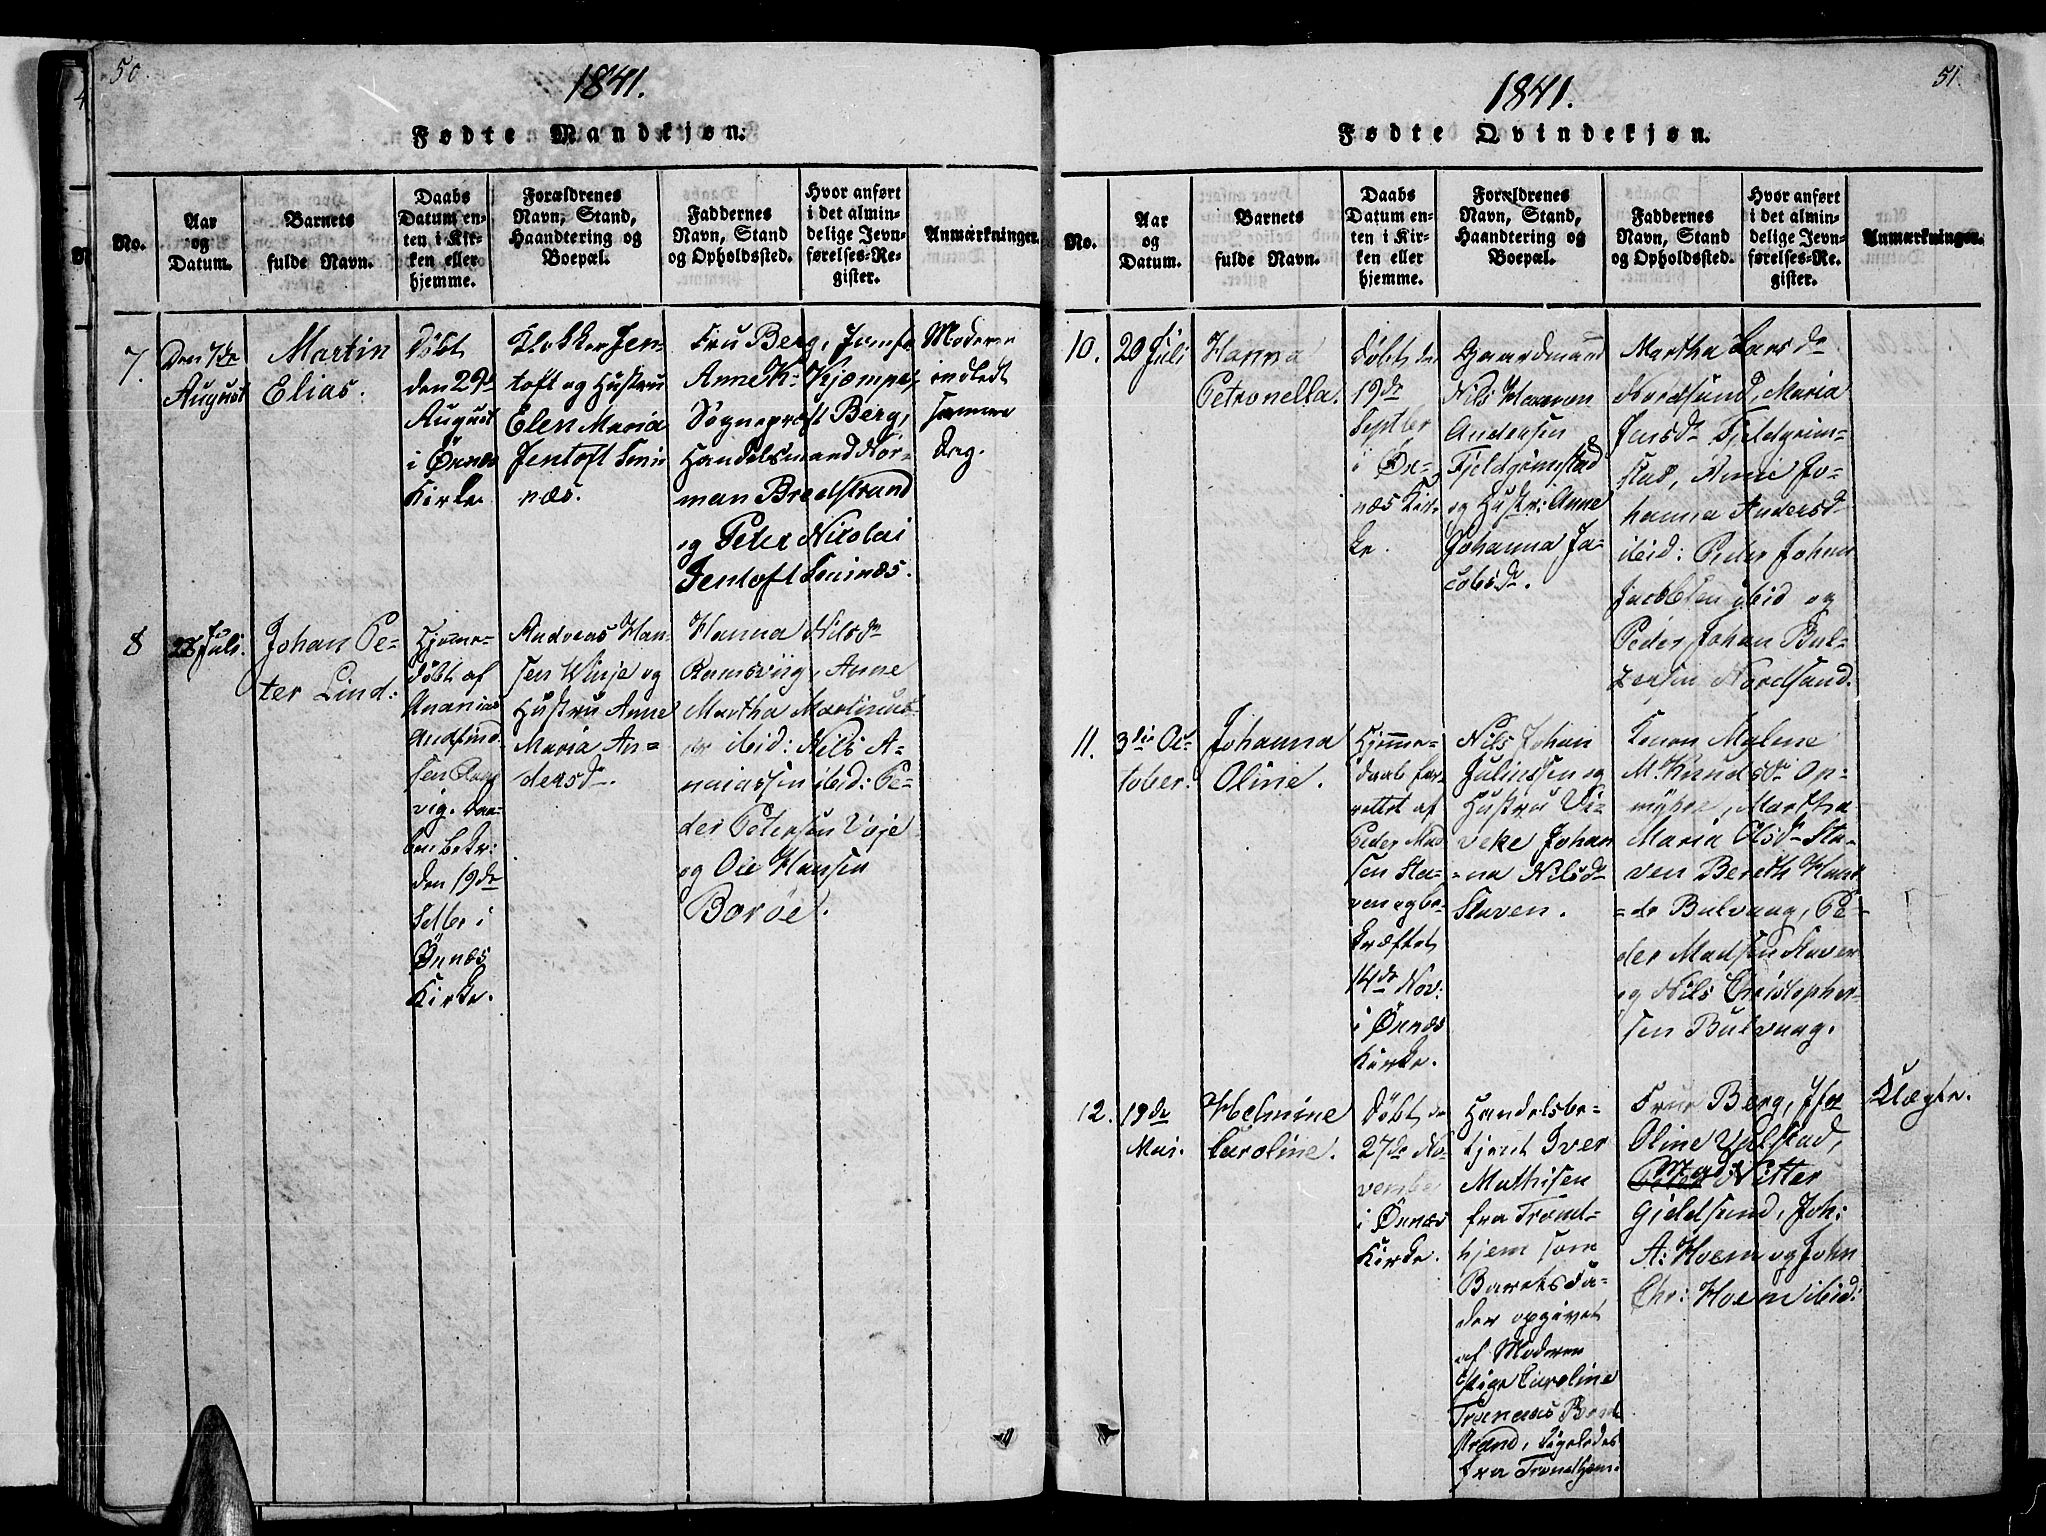 50.
1841.
Fødte Mandkjøn.
No.
Aar
og
Datum.
Barnets
fulde Navn.
Daabs
Datum en-
ten i Kir-
ken eller
hjemme.
Forældrenes
Navn, Stand,
Haandtering og
Boepæl.
Faddernes
Navn, Stand
og Opholdssted.
Hvor anført
i det almin-
delige Jevn-
førelses-Re-
gister.
Anmærkninger.
7.
Den 7de
August
Martin
Elias.
Døbt
den 29de
August
i Ønnæs
Kirke
Klokker Jen-
toft og Hustru
Elen Maria
Jentoft
næs.
Fru Berg, Jomfr
Anne K: Kjæmpe,
Sognepræst Berg,
Handelsmand Nor-
man Bredstrand
og Peter Nicolai
Jentoft
Moderen
indledt
samme
Dag.
8
Juli.
Johan Pe-
ter Lind:
Hjemme-
døbt af
Ananias
vig. Daa-
ben bekr:
den 19de
i
Ønnæs
Kirke.
Andreas Han-
sen Winje og
Hustru Anne
Maria An-
dersdr.
Hanna Nilsdr
Ramsviig, Anne
Martha Martinus-
dr ibid: Nils A-
naiassen ibid: Pe-
der Petersen Vaje
og Ole Hansen
Borøe.
51.
1841.
Fødte Qvindekjøn.
No.
Aar
og
Datum.
Barnets
fulde Navn.
Daabs
Datum en-
ten i Kir-
ken eller
hjemme.
Forældrenes
Navn, Stand,
Haandtering og
Boepæl.
Faddernes
Navn, Stand
og Opholdssted.
Hvor anført
i det almin-
delige Jevn-
førelses-Re-
gister.
Anmærkninger.
10.
20 Juli
Hanna
Petronella.
Døbt de
19de
Septber
i Øn-
næs Kir-
ke.
Gaardmand
Nils
Andersen
og Hustr: Anne
Johanna Ja-
cobsdr.
Martha Larsdr
Nordsund, Maria
Jensdr Fjeldgrim-
stad, Anne Jo-
hanna Andersdr
ibid: Peder Johan
Jacobsen ibid og
Peder Johan Bal-
zersen Nordsand.
11.
3die Oc-
tober.
Johanna
Oline.
Hjemme-
daab for-
rettet af
Peder Mad
sen Sta-
ven og be-
kræftet
14de Nov:
i Ønnæs
Kirke.
Nils Johan
Juliussen og
Hustru Vi-
veke Johan
=na Nilsdr
Staven.
Malene
M: Knudsdr Op-
myhre, Martha
Maria Olsdr Sta-
ven Bereth Hans
=dr Bulvaag, Pe-
der Madsen Staven
og Nils Christopher-
sen Bulvaag.
12.
19de
Mai.
Helmine
Caroline.
Døbt de
27de No-
vember
i Ønnæs
Kirke.
Handelsbe-
tjent Iver
Mathisen
fra Trond-
hjem som
Barnets Fa-
der opgivet
af Moderen
Pige Caroline
strand, ligeledes
fra Trondhjem.
Frue Berg, Jfr
Oline Valstad,
Mad: Nitter
Gjeldsund, Joh:
A: Hoem og John
Chr: Hoem ibid:
Uægte.